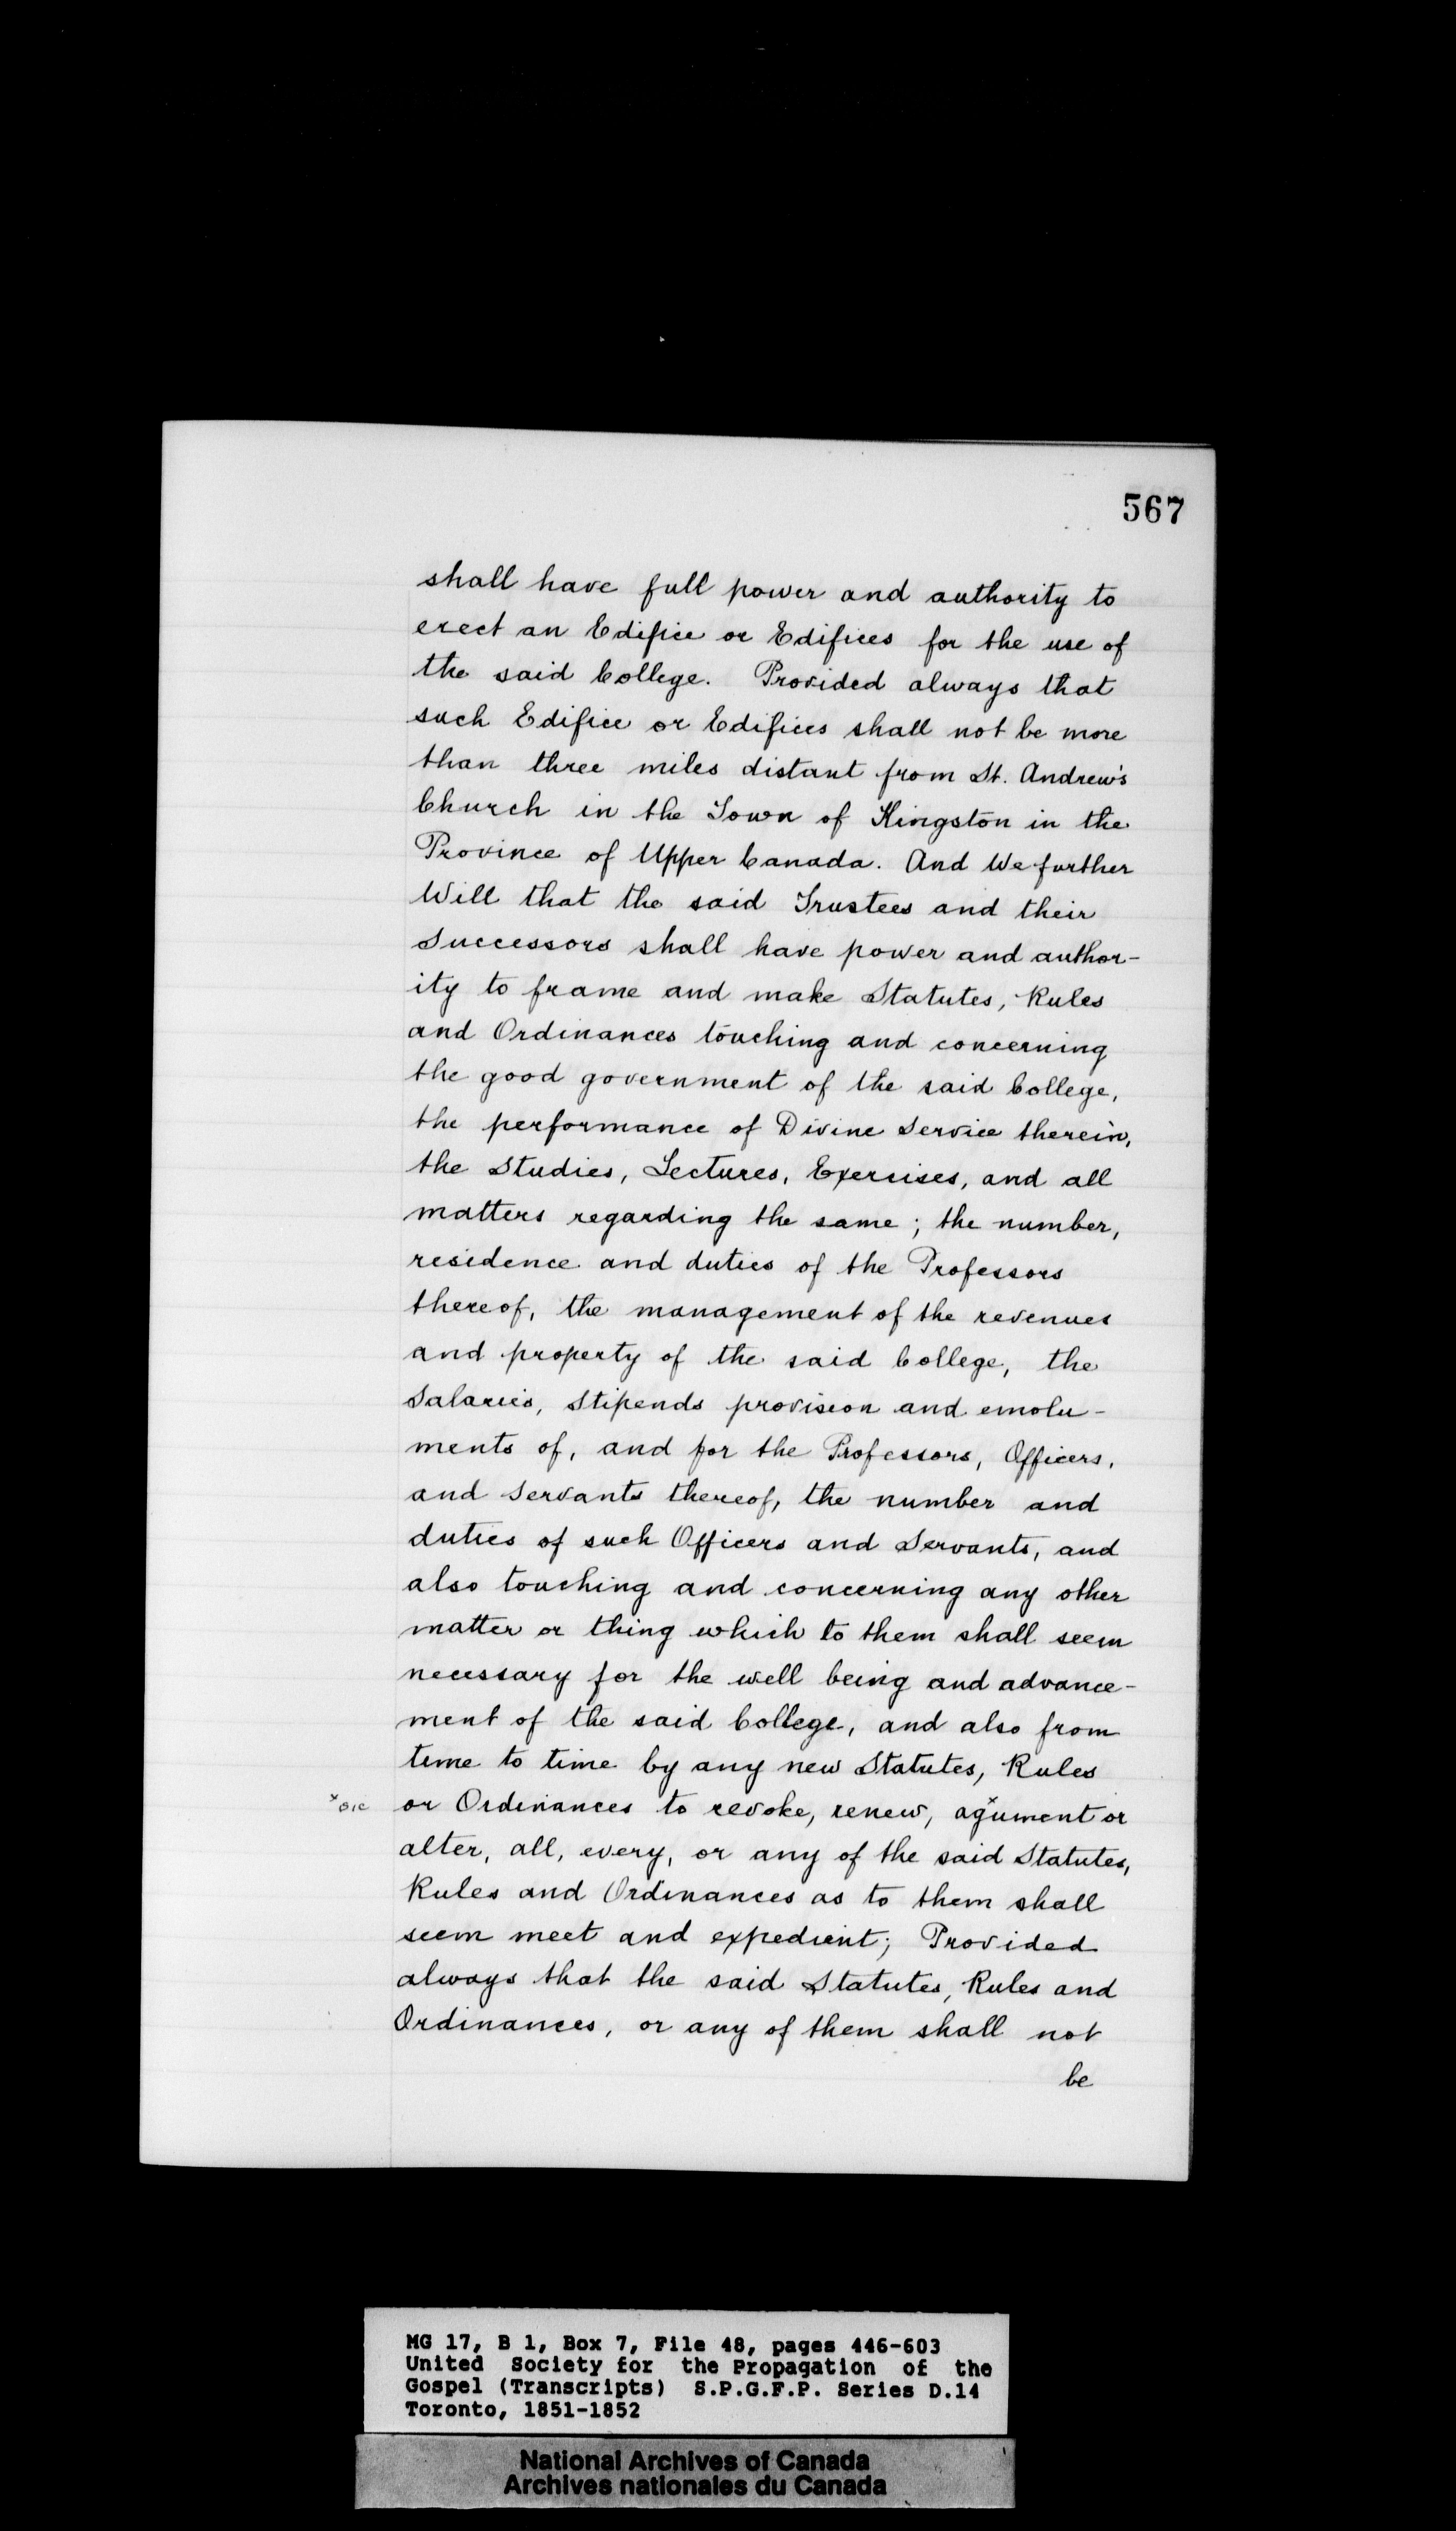 567
shall have full power and authority to
erect an Edifice or Edifices for the use of
the said College. Provided always that
such Edifice or Edifices shall not be more
than three miles distant from St. Andrew's
Church in the Town of Kingston in the
Province of Upper Canada. And We further
Will that the said Trustees and their
Successors shall have power and author-
ity to frame and make Statutes, Rules
and Ordinances touching and concerning
the good government of the said College,
the performance of Divine Service therein,
the Studies, Lectures, Exercises, and all
matters regarding the same; the number,
residence and duties of the Professors
thereof, the management of the revenues
and property of the said College, the
Salaries, Stipends provision and emolu-
ments of, and for the Professors, Officers,
and Servants thereof, the number and
duties of such Officers and Servants, and
also touching and concerning any other
matter or thing which to them shall seem
necessary for the well being and advance-
ment of the said College, and also from
time to time by any new Statutes, Rules
x sic or Ordinances to revoke, renew, agxument or
alter, all, every, or any of the said Statutes,
Rules and Ordinances as to them shall
seem meet and expedient; Provided
always that the said Statutes, Rules and
Ordinances, or any of them shall not
be
MG 17, B 1, Box 7, File 48, pages 446-603
United Society for the Propagation of the
Gospel (Transcripts) S.P.G.F.P. Series D.14
Toronto, 1851-1852
National Archives of Canada
Archives nationales du Canada